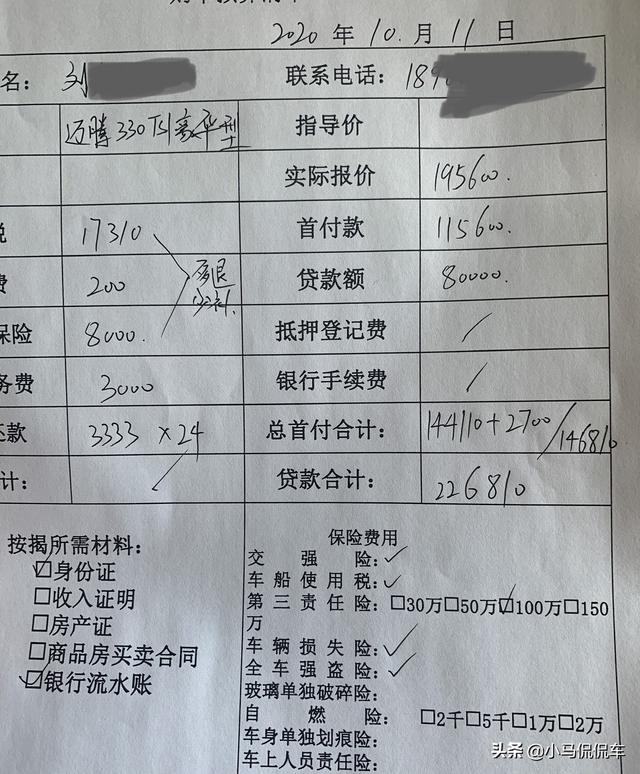 2020 年 10. 月 11 日
名： 刘 联系电话： 189
迈腾330TSI豪华型 指导价
实际报价 195600.
税 17310 首付款 115600.
费 200 多退少补. 贷款额 80000.
保险 8000. 抵押登记费 /
务费 3000 银行手续费 /
还款 3333 ×24 总首付合计： 144110+2700/146810
计： 贷款合计： 226810
按揭所需材料：
☑身份证
□收入证明
□房产证
□商品房买卖合同
☑银行流水账
保险费用
交 强 险：✓
车 船 使 用 税：✓
第 三 责 任 险：□30万□50万☑100万□150
万
车 辆 损 失 险：✓
全 车 强 盗 险：✓
玻璃单独破碎险：
自 燃 险： □2千□5千□1万□2万
车身单独划痕险：
车上人员责任险：
头条 @小马侃侃车